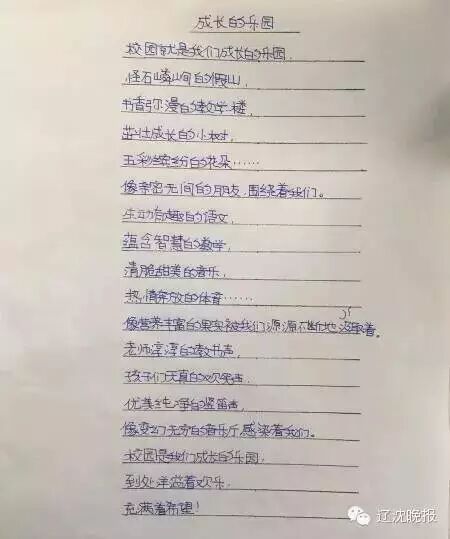 成长的乐园
校园就是我们成长的乐园，
怪石嶙峋的假山，
书香弥漫的教学楼，
茁壮成长的小树，
五彩缤纷的花朵……
像亲密无间的朋友，围绕着我们。
生动有趣的语文，
蕴含智慧的数学，
清脆甜美的音乐，
热情奔放的体育……
像营养丰富的果实被我们源源不断地汲取着。
老师谆谆的教书声，
孩子们天真的欢笑声，
优美纯净的竖笛声，
像变幻无穷的音乐厅感染着我们。
校园是我们成长的乐园，
到处洋溢着欢乐，
充满着希望！
辽沈晚报